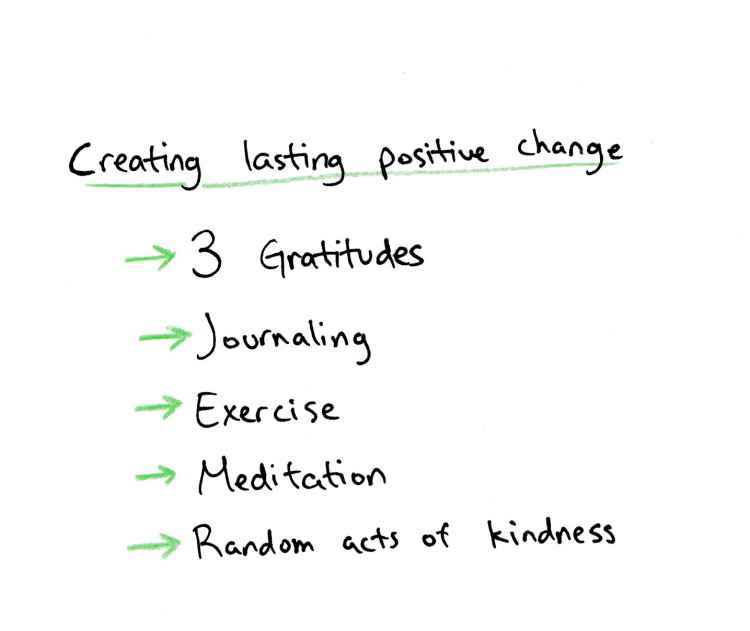 Creating lasting positive change
→ 3 Gratitudes
→ Journaling
→ Exercise
→ Meditation
→ Random acts of kindness